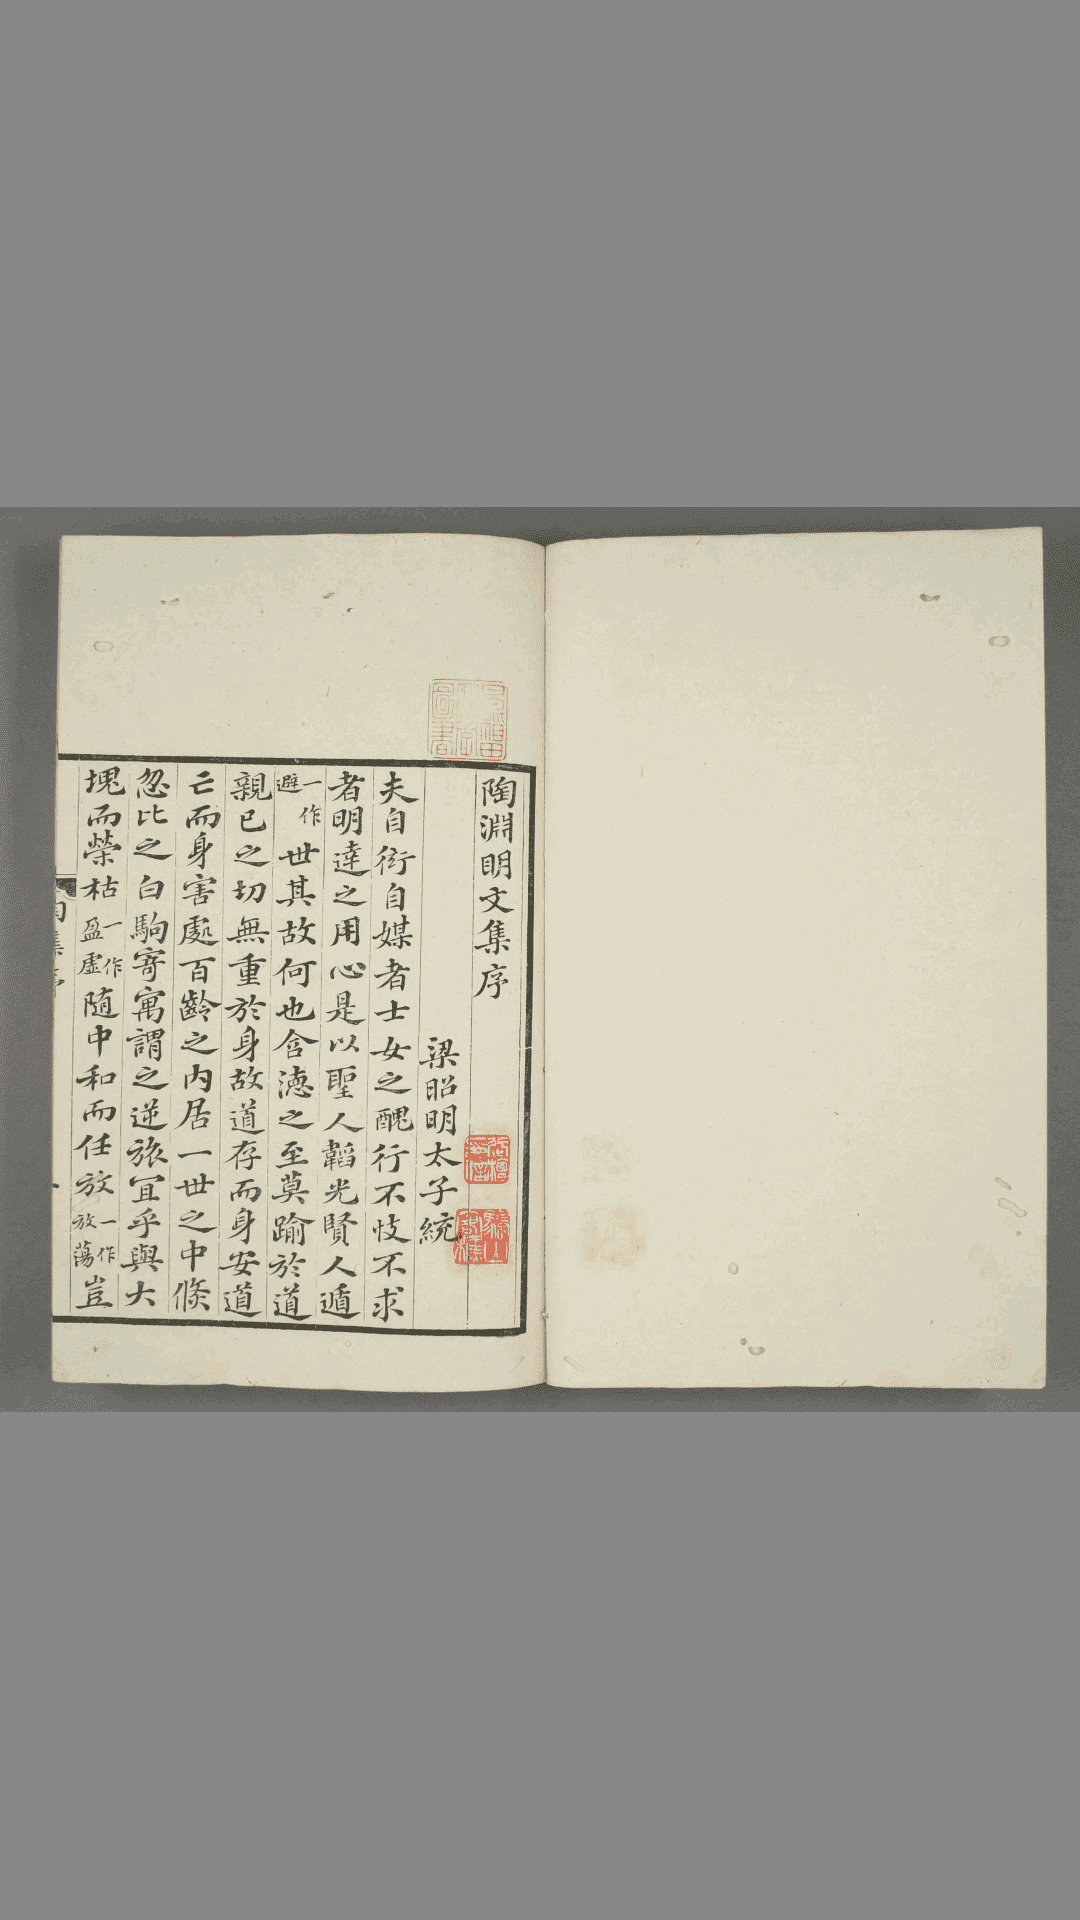 陶淵明文集序
梁昭明太子統
夫自衒自媒者士女之醜行不忮不求
者明達之用心是以聖人韜光賢人遁
一作避世其故何也含德之至莫踰於道
親己之切無重於身故道存而身安道
亡而身害處百齡之内居一世之中倐
忽比之白駒寄寓謂之逆旅宜乎與大
塊而榮枯一作盈虛隨中和而任放一作放蕩豈